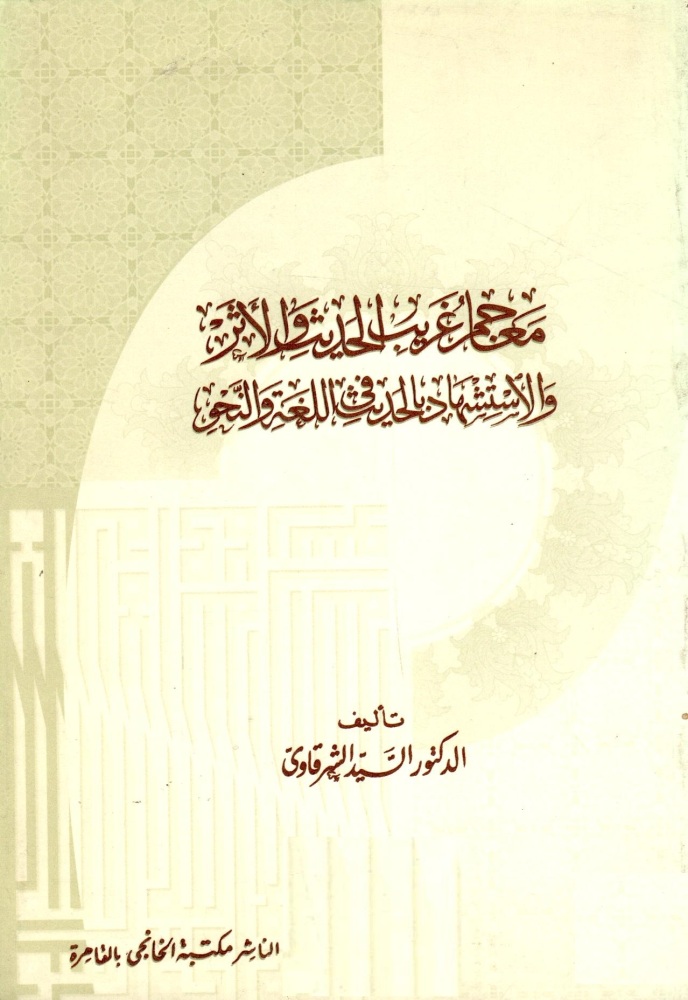 مَعَاجِمُ غَرِيبِ الحَدِيثِ وَالأَثَرْ
وَالاسْتِشْهَادِ بِالحَدِيثِ فِي اللُّغَةِ وَالنَّحْوِ
تأليف
الدكتور السَّيِّد الشرقاوي
الناشر مكتبة الخانجى بالقاهرة